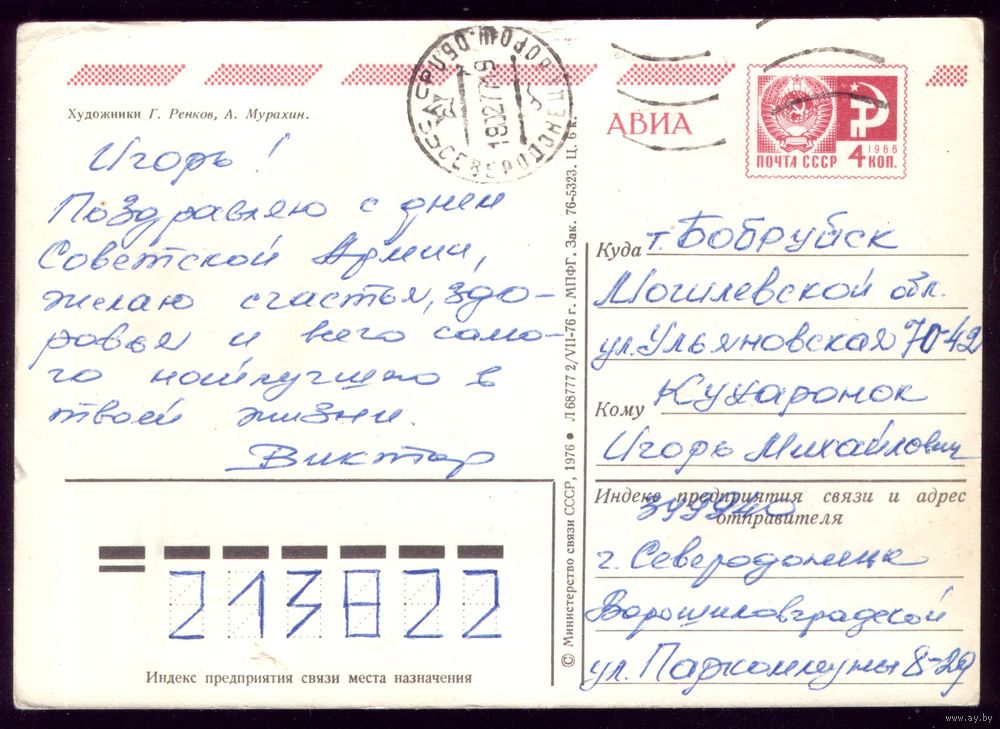 Художники Г. Ренков, А. Мурахин.
Игорь!
Поздравляю с днем
Советской Армии,
желаю счастья, здо-
ровья и всего само-
го наилучшего в
твоей жизни.
Виктор
213822
Индекс предприятия связи места назначения
© Министерство связи СССР, 1976 ● Л 68777 2/VII-76 г. МПФГ. Зак. 76-5323. Ц. 6 к.
АВИА
ПОЧТА СССР 4 КОП.
1966
Куда г. Бобруйск
Могилевской обл.
ул. Ульяновская 70-42
Кому Кухаронок
Игорь Михайлович
Индекс предприятия связи и адрес
отправителя
г. Северодонецк
Ворошиловградской
ул. Парткоммуны 8-29
www.ay.by